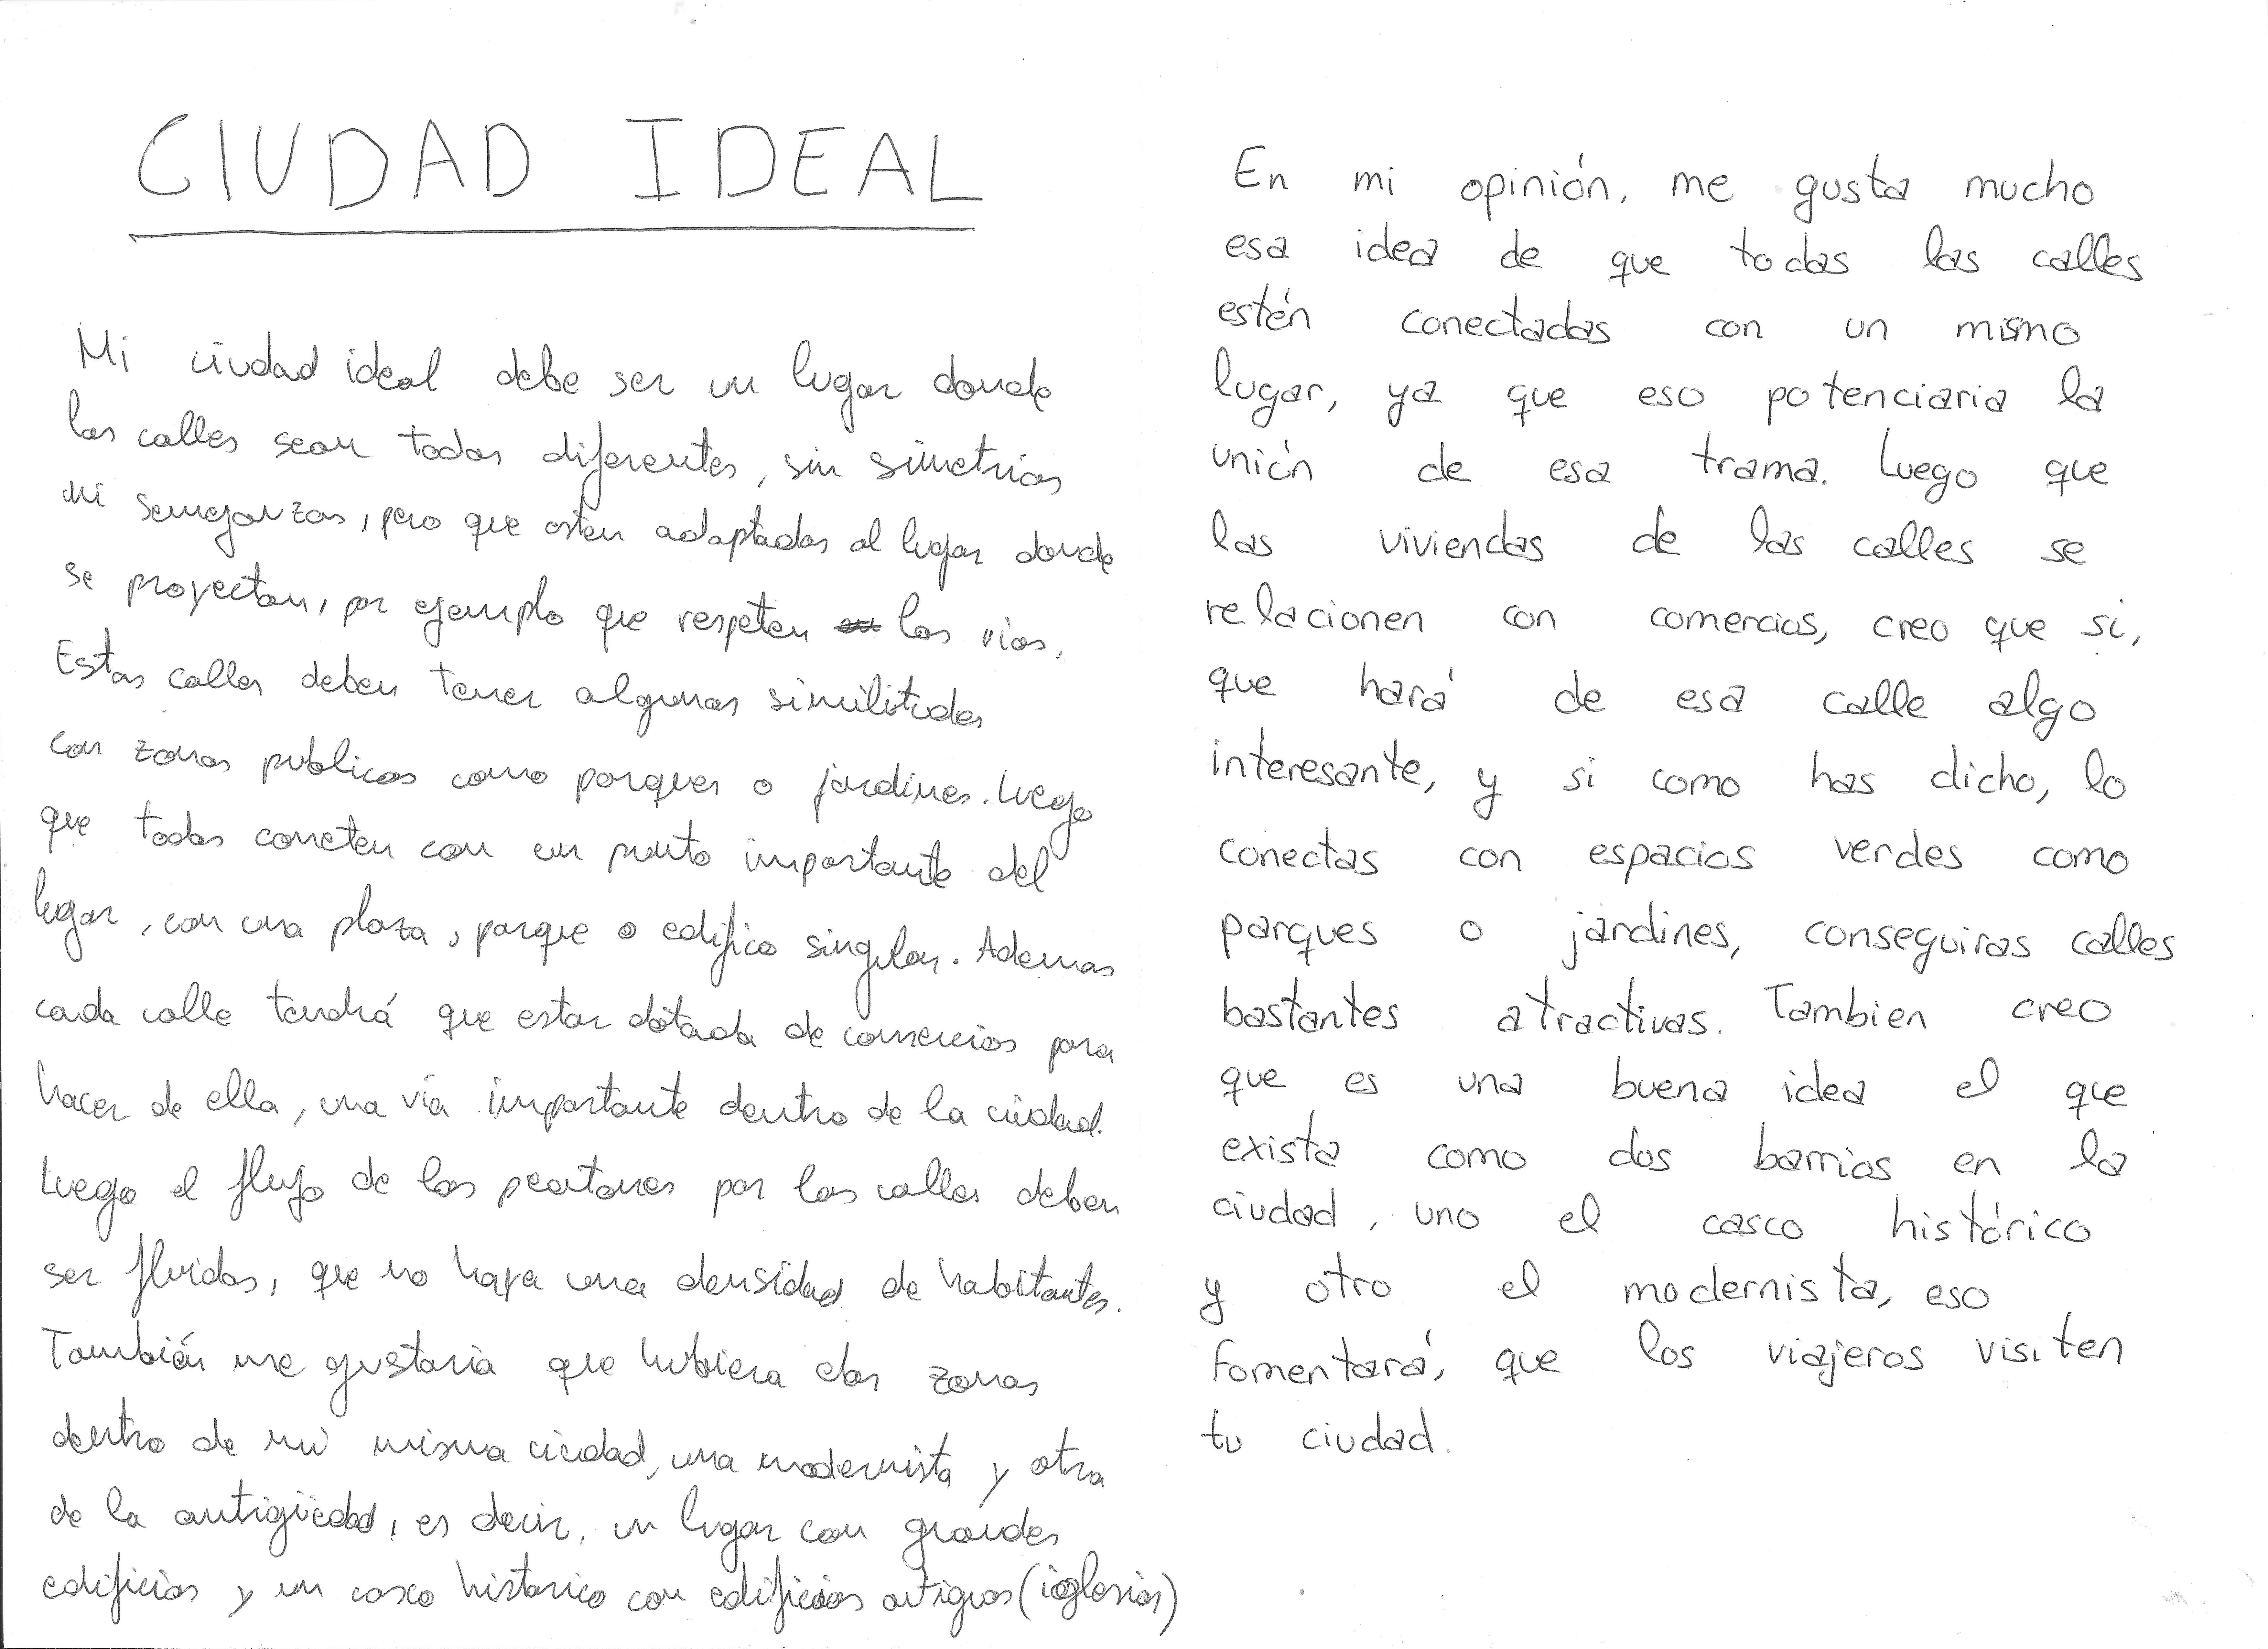 CIUDAD IDEAL
Mi ciudad ideal debe ser un lugar donde
las calles sean todas diferentes, sin simetrias
ni semejanzas, pero que esten adaptadas al lugar donde
se proyectan, por ejemplo que respeten las vias.
Estas calles deben tener algunas similitudes
con zonas publicas como parques o jardines. Luego
que todas coneten con un punto importante del
lugar, con una plaza, parque o edifico singular. Ademas
cada calle tendrá que estar dotada de comercios para
hacer de ella, una vía importante dentro de la ciudad.
Luego el flujo de los peatones por las calles deben
ser fluidos, que no haya una densidad de habitantes.
También me gustaria que hubiera dos zonas
dentro de mi misma ciudad, una modernista y otra
de la antigüedad, es decir, un lugar con grandes
edificios y un casco historico con edificios antiguos (iglesias)
En mi opinión, me gusta mucho
esa idea de que todas las calles
estén conectadas con un mismo
lugar, ya que eso potenciaria la
unión de esa trama. Luego que
las viviendas de las calles se
relacionen con comercios, creo que si,
que hará de esa calle algo
interesante, y si como has dicho, lo
conectas con espacios verdes como
parques o jardines, conseguiras calles
bastantes atractivas. Tambien creo
que es una buena idea el que
exista como dos barrios en la
ciudad, uno el casco histórico
y otro el modernista, eso
fomentará, que los viajeros visiten
tu ciudad.